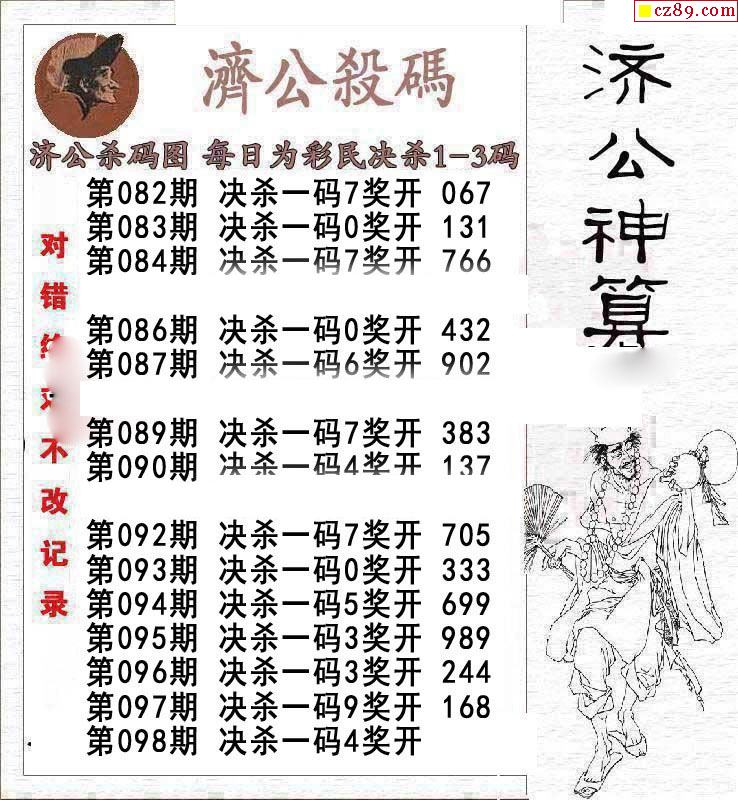 cz89.com
濟公殺碼
济公杀码图 每日为彩民决杀1-3码
第082期 决杀一码7奖开 067
第083期 决杀一码0奖开 131
第084期 决杀一码7奖开 766
第086期 决杀一码0奖开 432
第087期 决杀一码6奖开 902
第089期 决杀一码7奖开 383
第090期 决杀一码4奖开 137
第092期 决杀一码7奖开 705
第093期 决杀一码0奖开 333
第094期 决杀一码5奖开 699
第095期 决杀一码3奖开 989
第096期 决杀一码3奖开 244
第097期 决杀一码9奖开 168
第098期 决杀一码4奖开
对错
不改记录
济公神算